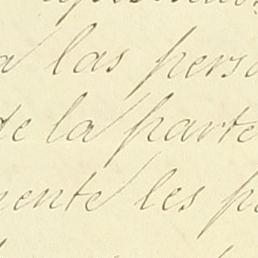 a las perso
de la parte
mente les p